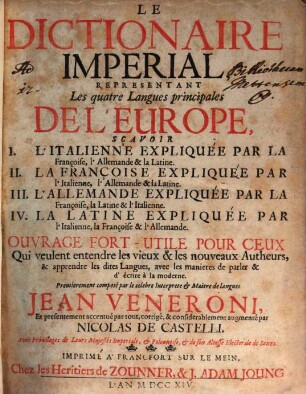 LE
DICTIONAIRE
IMPERIAL
REPRESENTANT
Les quatre Langues principales
DE L'EUROPE,
SCAVOIR
I. L'ITALIENNE EXPLIQUÉE PAR LA
Françoise, l'Allemande & la Latine.
II. LA FRANÇOISE EXPLIQUÉE PAR
l'Italienne, l'Allemande & la Latine.
III. L'ALLEMANDE EXPLIQUÉE PAR LA
Françoise, la Latine & l'Italienne.
IV. LA LATINE EXPLIQUÉE PAR
l'Italienne, la Françoise & l'Allemande.
OUVRAGE FORT-UTILE POUR CEUX
Qui veulent entendre les vieux & les nouveaux Autheurs,
& apprendre les dites Langues, avec les manieres de parler &
d'écrire à la moderne.
Premierement composé par le celebre Interprete & Maitre de langues
JEAN VENERONI,
Et presentement accentué par tout, corrigé, & considerablement augmenté par
NICOLAS DE CASTELLI.
Avec Privileges de Leurs Majestés Imperiale, & Polonoise, & de son Altesse Electorale de Saxe.
IMPRIMÉ À FRANCFORT SUR LE MEIN,
Chez les Heritiers de ZOUNNER, & J. ADAM JOUNG
L'AN MDCCXIV.